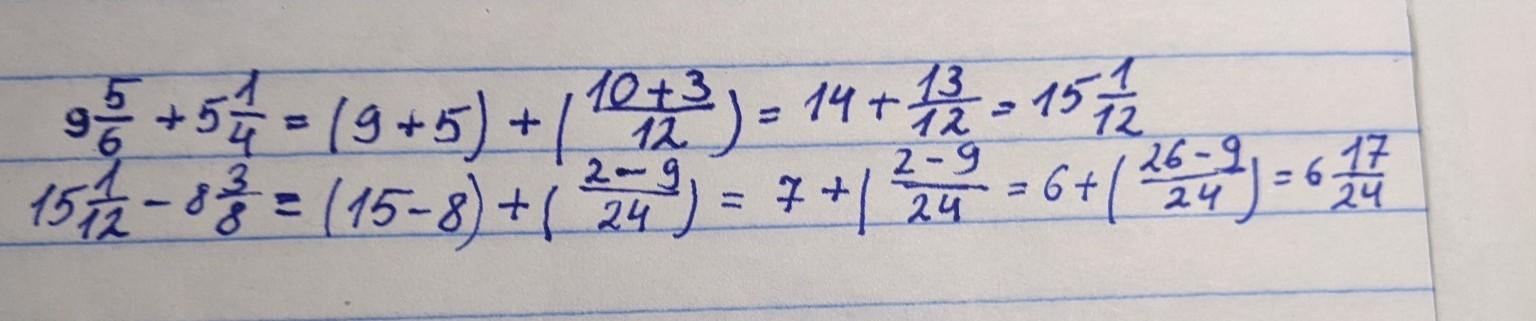 9 5/6 + 5 1/4 = (9+5) + (10+3/12) = 14 + 13/12 = 15 1/12
15 1/12 - 8 3/8 = (15-8) + (2-9/24) = 7 + (2-9/24 = 6 + (26-9/24) = 6 17/24